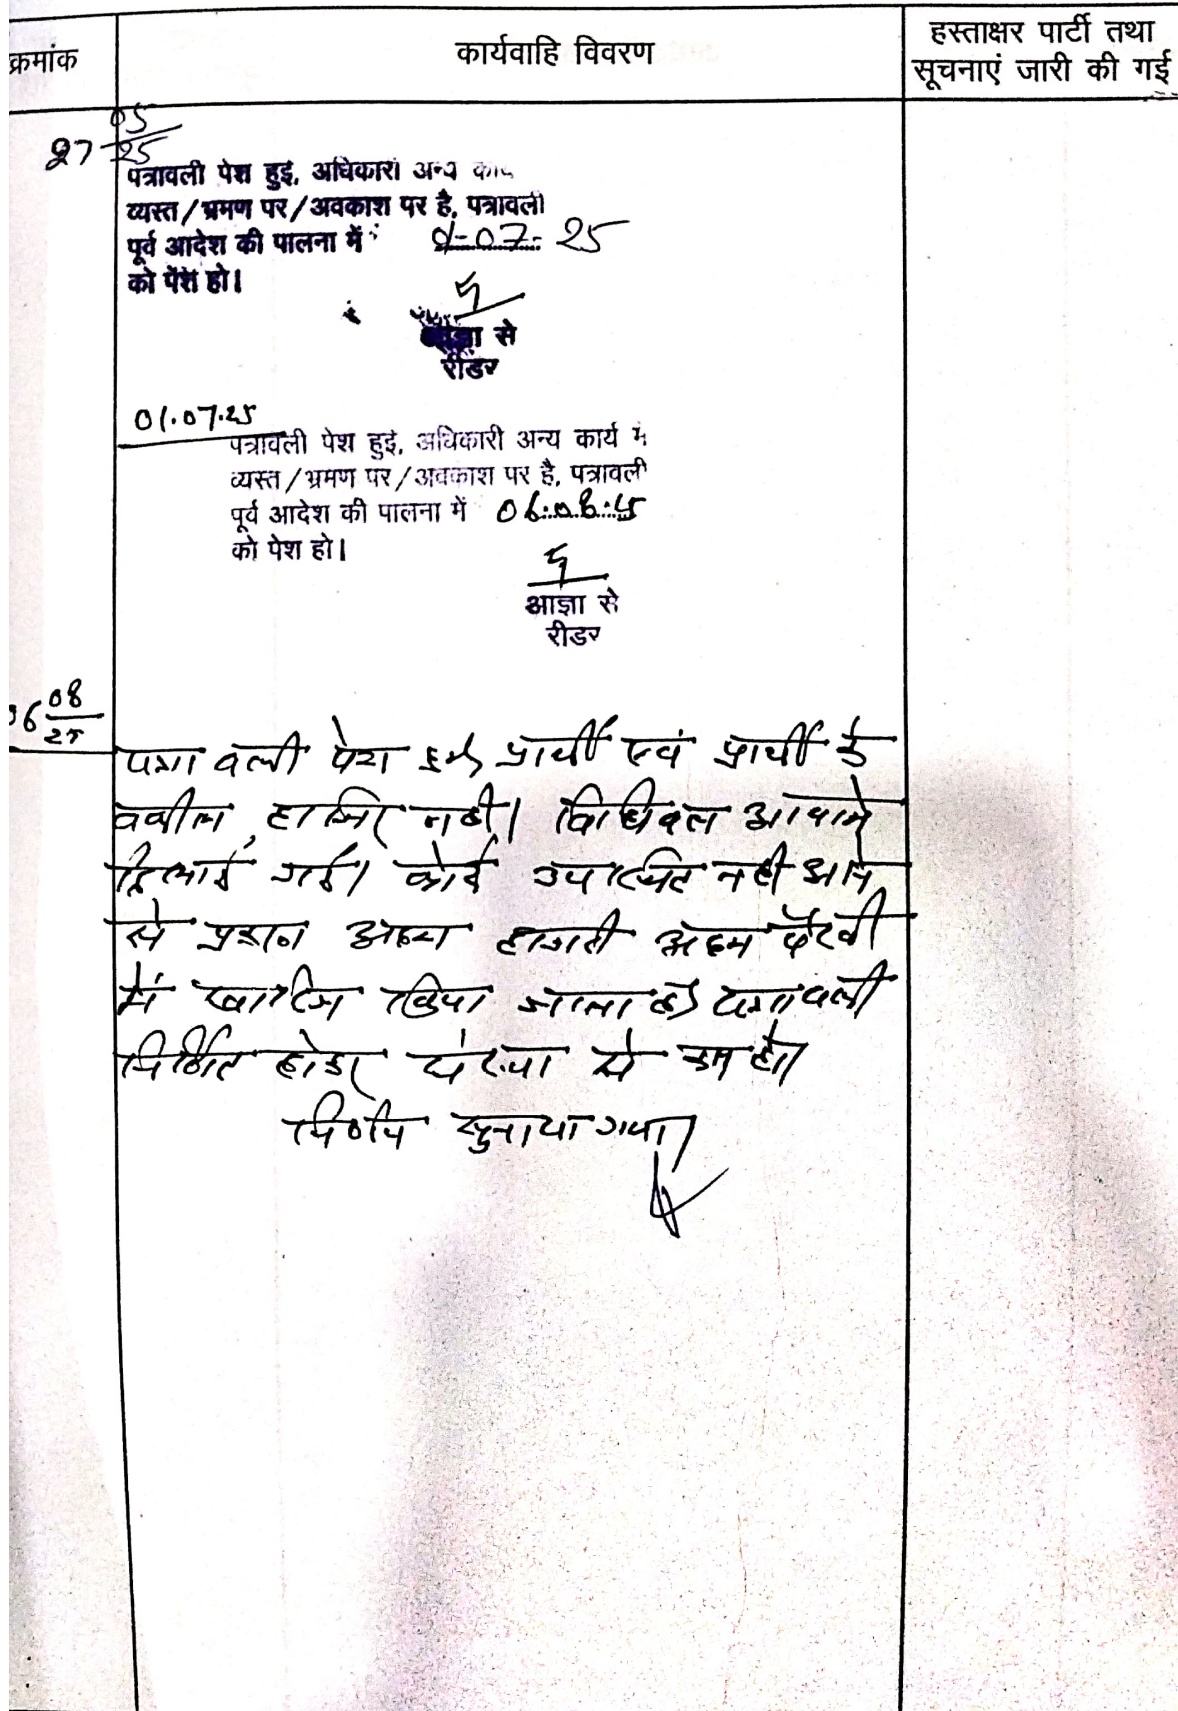 क्रमांक
कार्यवाहि विवरण
हस्ताक्षर पार्टी तथा
सूचनाएं जारी की गई
27 05/25
पत्रावली पेश हुई, अधिकारी अन्य कार्य
व्यस्त/भ्रमण पर/अवकाश पर है, पत्रावली
पूर्व आदेश की पालना में 01-07-25
को पेश हो।
आज्ञा से
रीडर
01.07.25
पत्रावली पेश हुई, अधिकारी अन्य कार्य में
व्यस्त/भ्रमण पर/अवकाश पर है, पत्रावली
पूर्व आदेश की पालना में 06.08.25
को पेश हो।
आज्ञा से
रीडर
06 08/25
पत्रावली पेश हुई। प्रार्थी एवं प्रार्थी के
वकील हाजिर नही। विधिवत आवाजे
दिलाई गई। कोई उपस्थित नही आने
से प्रकरण अदम हाजरी अदम पैरवी
में खारिज किया जाता है। पत्रावली
निर्णित होकर संख्या से कम हो।
निर्णय सुनाया गया।